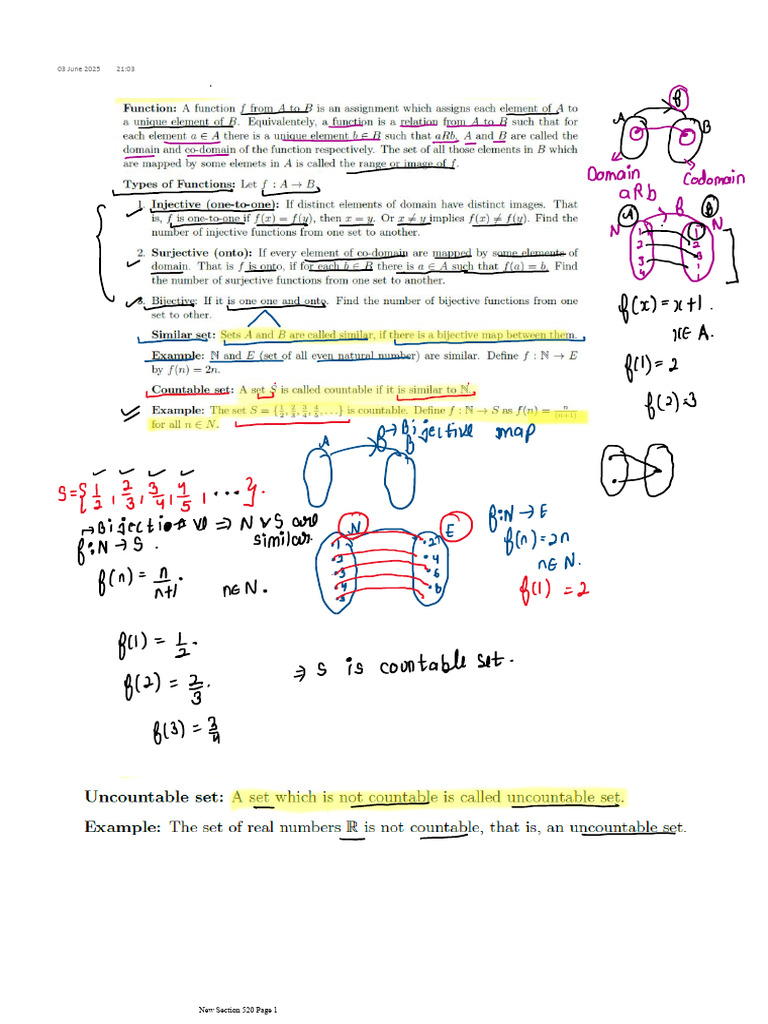 03 June 2025 21:03
Function: A function f from A to B is an assignment which assigns each element of A to
a unique element of B. Equivalentely, a function is a relation from A to B such that for
each element a ∈ A there is a unique element b ∈ B such that aRb. A and B are called the
domain and co-domain of the function respectively. The set of all those elements in B which
are mapped by some elemets in A is called the range or image of f.
Types of Functions: Let f : A → B.
1. Injective (one-to-one): If distinct elements of domain have distinct images. That
is, f is one-to-one if f(x) = f(y), then x = y. Or x ≠ y implies f(x) ≠ f(y). Find the
number of injective functions from one set to another.
2. Surjective (onto): If every element of co-domain are mapped by some elements of
domain. That is f is onto, if for each b ∈ B there is a ∈ A such that f(a) = b. Find
the number of surjective functions from one set to another.
3. Bijective: If it is one one and onto. Find the number of bijective functions from one
set to other.
Similar set: Sets A and B are called similar, if there is a bijective map between them.
Example: ℕ and E (set of all even natural number) are similar. Define f : ℕ → E
by f(n) = 2n.
Countable set: A set S is called countable if it is similar to ℕ.
Example: The set S = {1/2, 2/3, 3/4, 4/5, ...} is countable. Define f : ℕ → S as f(n) = n/(n+1)
for all n ∈ N.
f
A
B
Domain
Codomain
aRb
A
f
B
N
N
1
2
3
4
1
2
3
f(x) = x+1.
x∈A.
f(1) = 2
f(2)=3
A
B
f→Bijective map
S={1/2, 2/3, 3/4, 4/5, ...}.
→Bijection ⇒ N & S are
similar.
f:N→S.
f(n) = n/n+1. n∈N.
N
E
1
2
3
4
5
2
4
6
f:N→E
f(n)=2n
n∈N.
f(1) = 2
f(1) = 1/2.
f(2) = 2/3.
f(3) = 3/4
⇒ S is countable set.
Uncountable set: A set which is not countable is called uncountable set.
Example: The set of real numbers ℝ is not countable, that is, an uncountable set.
New Section 520 Page 1